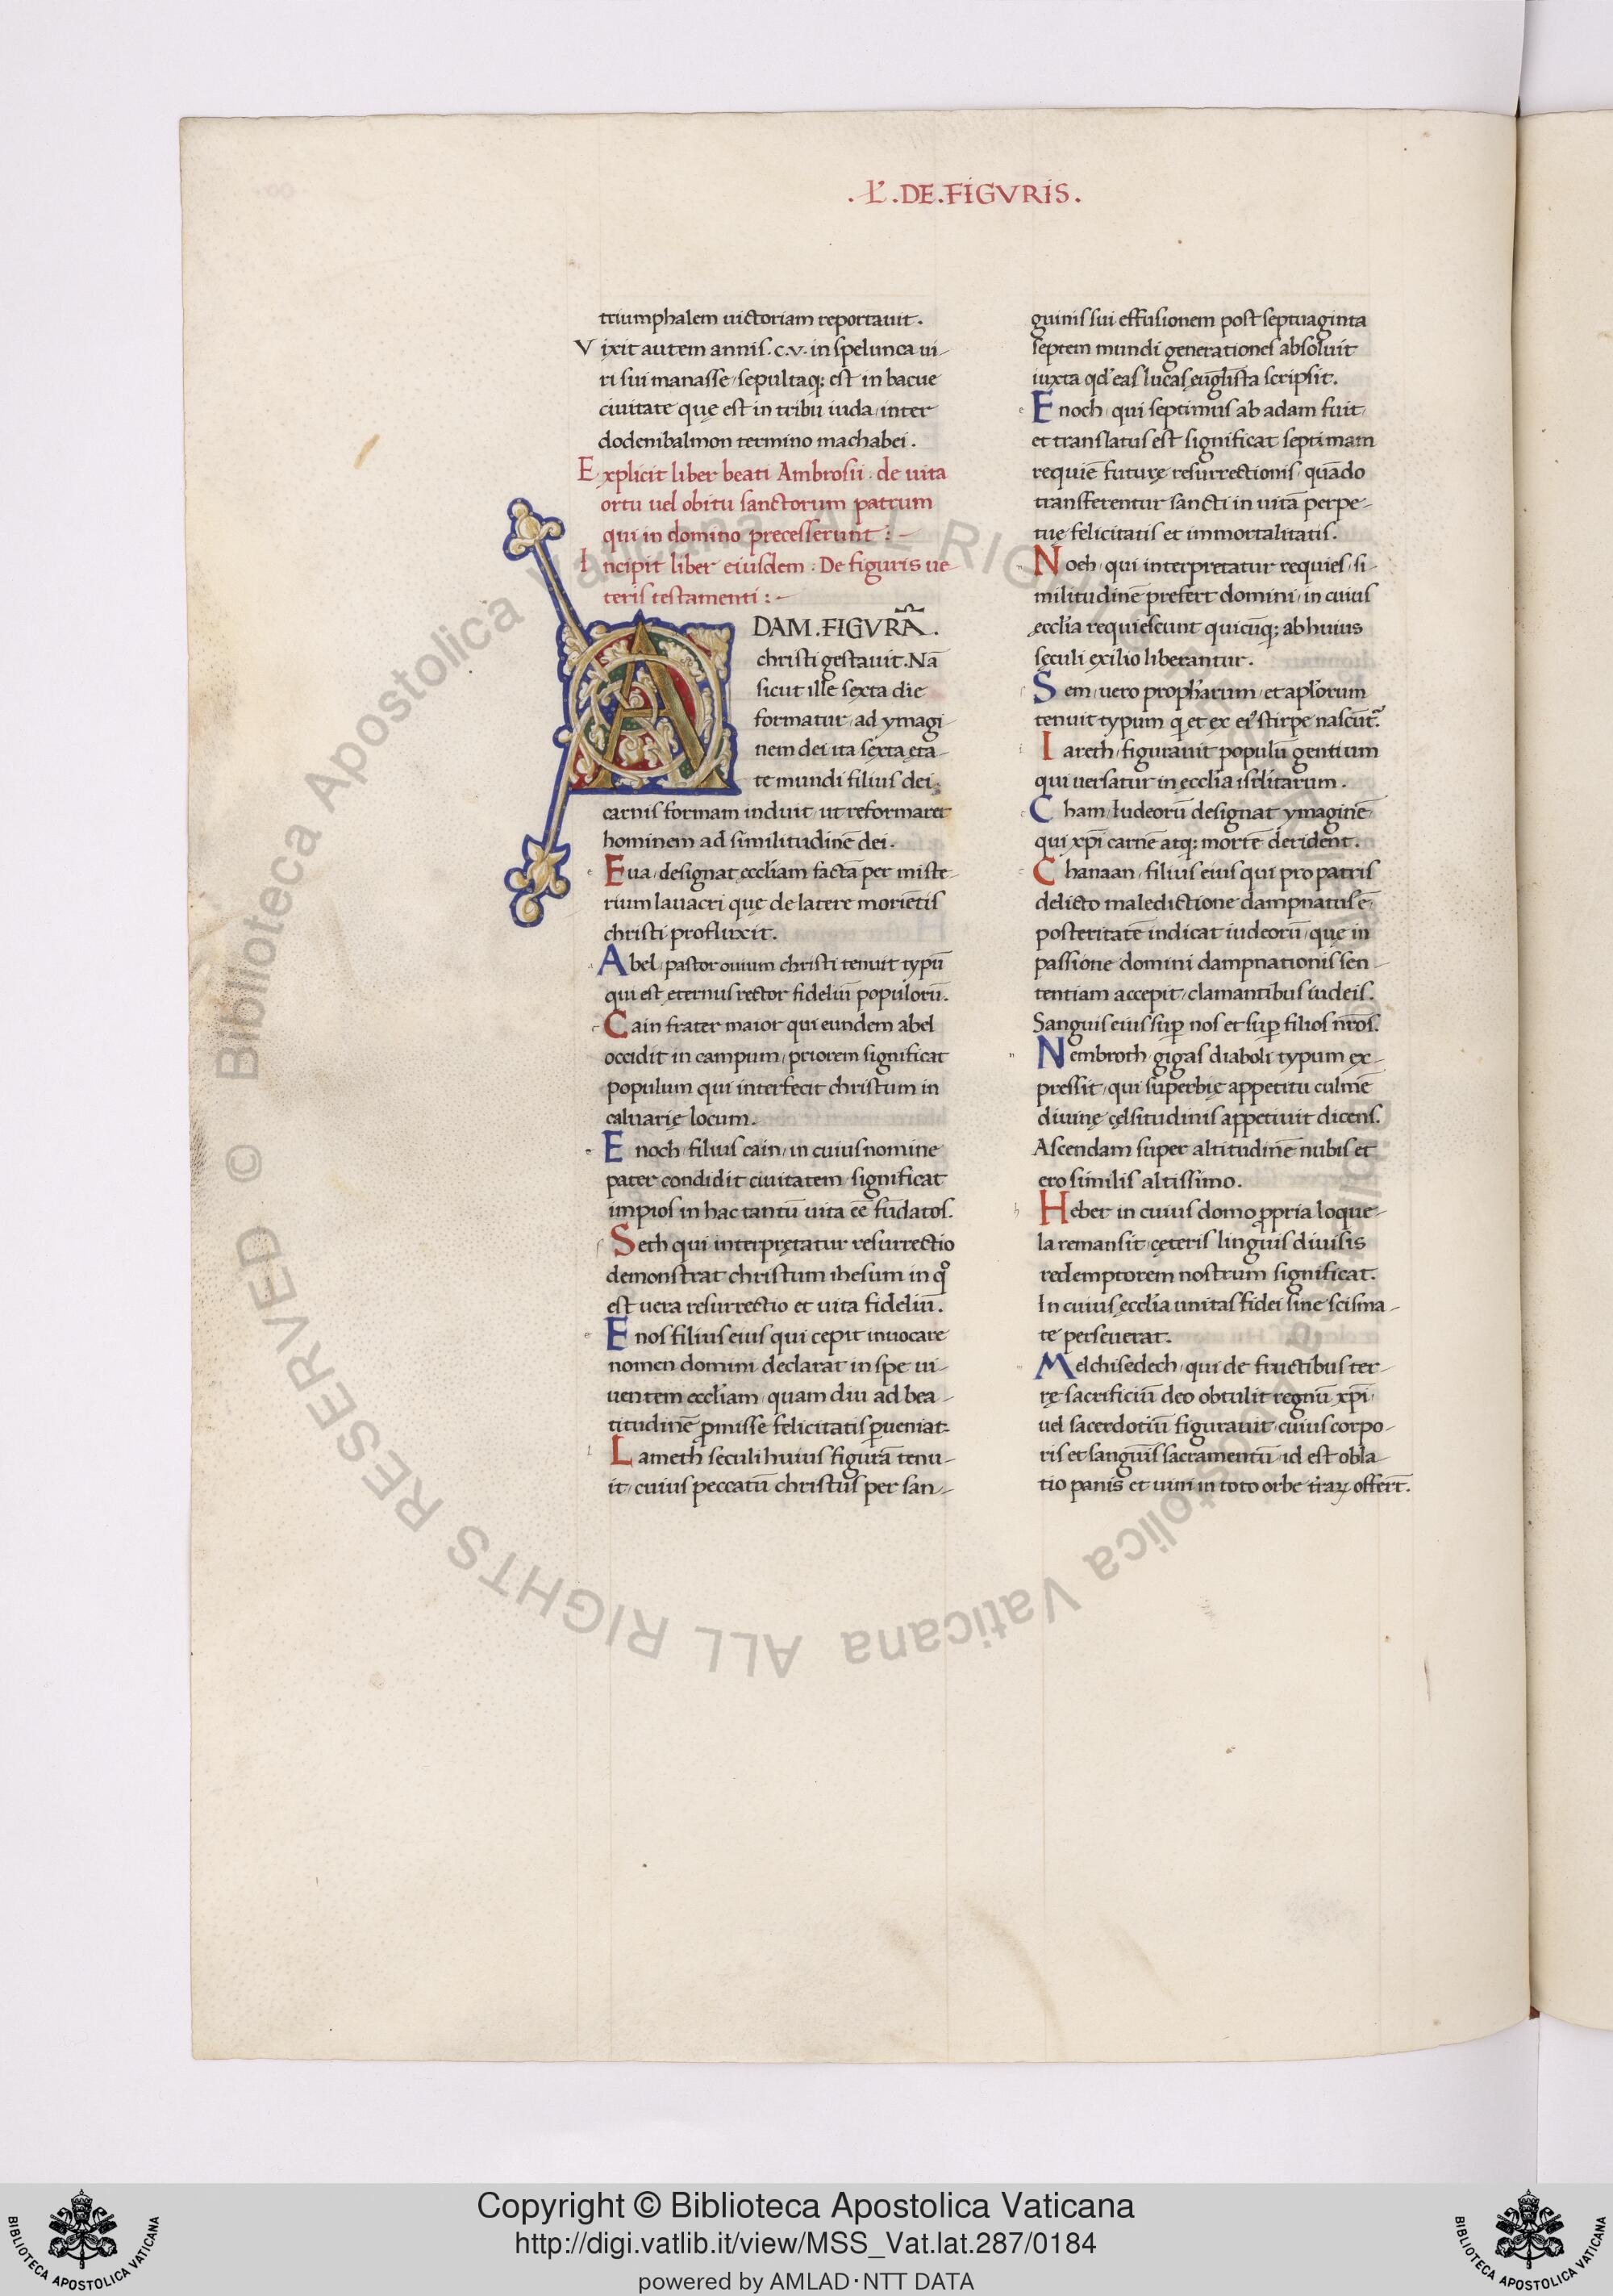 .L'.DE.FIGVRIS.
triumphalem uictoriam reportauit.
Vixit autem annis.c.v.in spelunca ui-
ri sui manasse sepultaq; est in bacue
ciuitate que est in tribu iuda inter
dodembalmon termino machabei.
Explicit liber beati Ambrosii. de uita
ortu uel obitu sanctorum patrum
qui in domino precesserunt:-
Incipit liber eiusdem: De figuris ue-
teris testamenti:-
ADAM.FIGVRĀ.
christi gestauit. Nā
sicut ille sexta die
formatur ad ymagi-
nem dei ita sexta eta-
te mundi filius dei
carnis formam induit ut reformaret
hominem ad similitudinē dei.
Eua designat eccl'iam factā per miste-
rium lauacri que de latere moriētis
christi profluxit.
Abel pastor ouium christi tenuit typū
qui est eternus rector fideliū populorū.
Cain frater maior qui eundem abel
occidit in campum priorem significat
populum qui interfecit christum in
caluarię locum.
Enoch filius cain in cuius nomine
pater condidit ciuitatem significat
impios in hac tantū uita eē fūdatos.
Seth qui interpretatur resurrectio
demonstrat christum ihesum in qº
est uera resurrectio et uita fideliū.
Enos filius eius qui cepit inuocare
nomen domini declarat in spe ui-
uentem eccl'iam quam diu ad bea-
titudinē ꝓmisse felicitatis ꝑueniat.
Lameth seculi huius figurā tenu-
it cuius peccatū christus per san-
guinis sui effusionem post septuaginta
septem mundi generationes absoluit
iuxta qd' eas lucas euḡlista scripsit.
Enoch qui septimus ab adam fuit
et translatus est significat septimam
requiē futurę resurrectionis quādo
transferentur sancti in uitā perpe-
tuę felicitatis et immortalitatis.
Noeh qui interpretatur requies si-
militudinē prefert domini in cuius
ęccl'ia requiescunt quicūq; ab huius
sęculi exilio liberantur.
Sem uero proph'arum et apl'orum
tenuit typum q et ex ei' stirpe nascūt'.
Iareth figurauit populū gentium
qui uersatur in ęccl'ia isrl'itarum.
Cham Iudeorū designat ymaginē
qui xp̄i carnē atq; mortē derident.
Chanaan filius eius qui pro patris
delicto maledictione dampnatus ē
posteritatē indicat iudeorū que in
passione domini dampnationis sen-
tentiam accepit clamantibus iudeis.
Sanguis eius suꝑ nos et suꝑ filios nr̄os.
Nembroth gigas diaboli typum ex-
pressit qui superbię appetitu culmē
diuinę cęlsitudinis appetiuit dicens.
Ascendam super altitudinē nubis et
ero similis altissimo.
Heber in cuius domo ꝓpria loque-
la remansit cęteris linguis diuisis
redemptorem nostrum significat.
In cuius ęccl'ia unitas fidei sine scisma-
te perseuerat.
Melchisedech qui de fructibus ter-
rę sacrificiū deo obtulit regnū xp̄i
uel sacerdotiū figurauit cuius corpo-
ris et sanguīs sacramentū id est obla-
tio panis et uini in toto orbe offert̄.
© Biblioteca Apostolica Vaticana ALL RIGHTS RESERVED
© Biblioteca Apostolica Vaticana ALL RIGHTS RESERVED
Copyright © Biblioteca Apostolica Vaticana
http://digi.vatlib.it/view/MSS_Vat.lat.287/0184
powered by AMLAD·NTT DATA
BIBLIOTECA APOSTOLICA VATICANA
BIBLIOTECA APOSTOLICA VATICANA